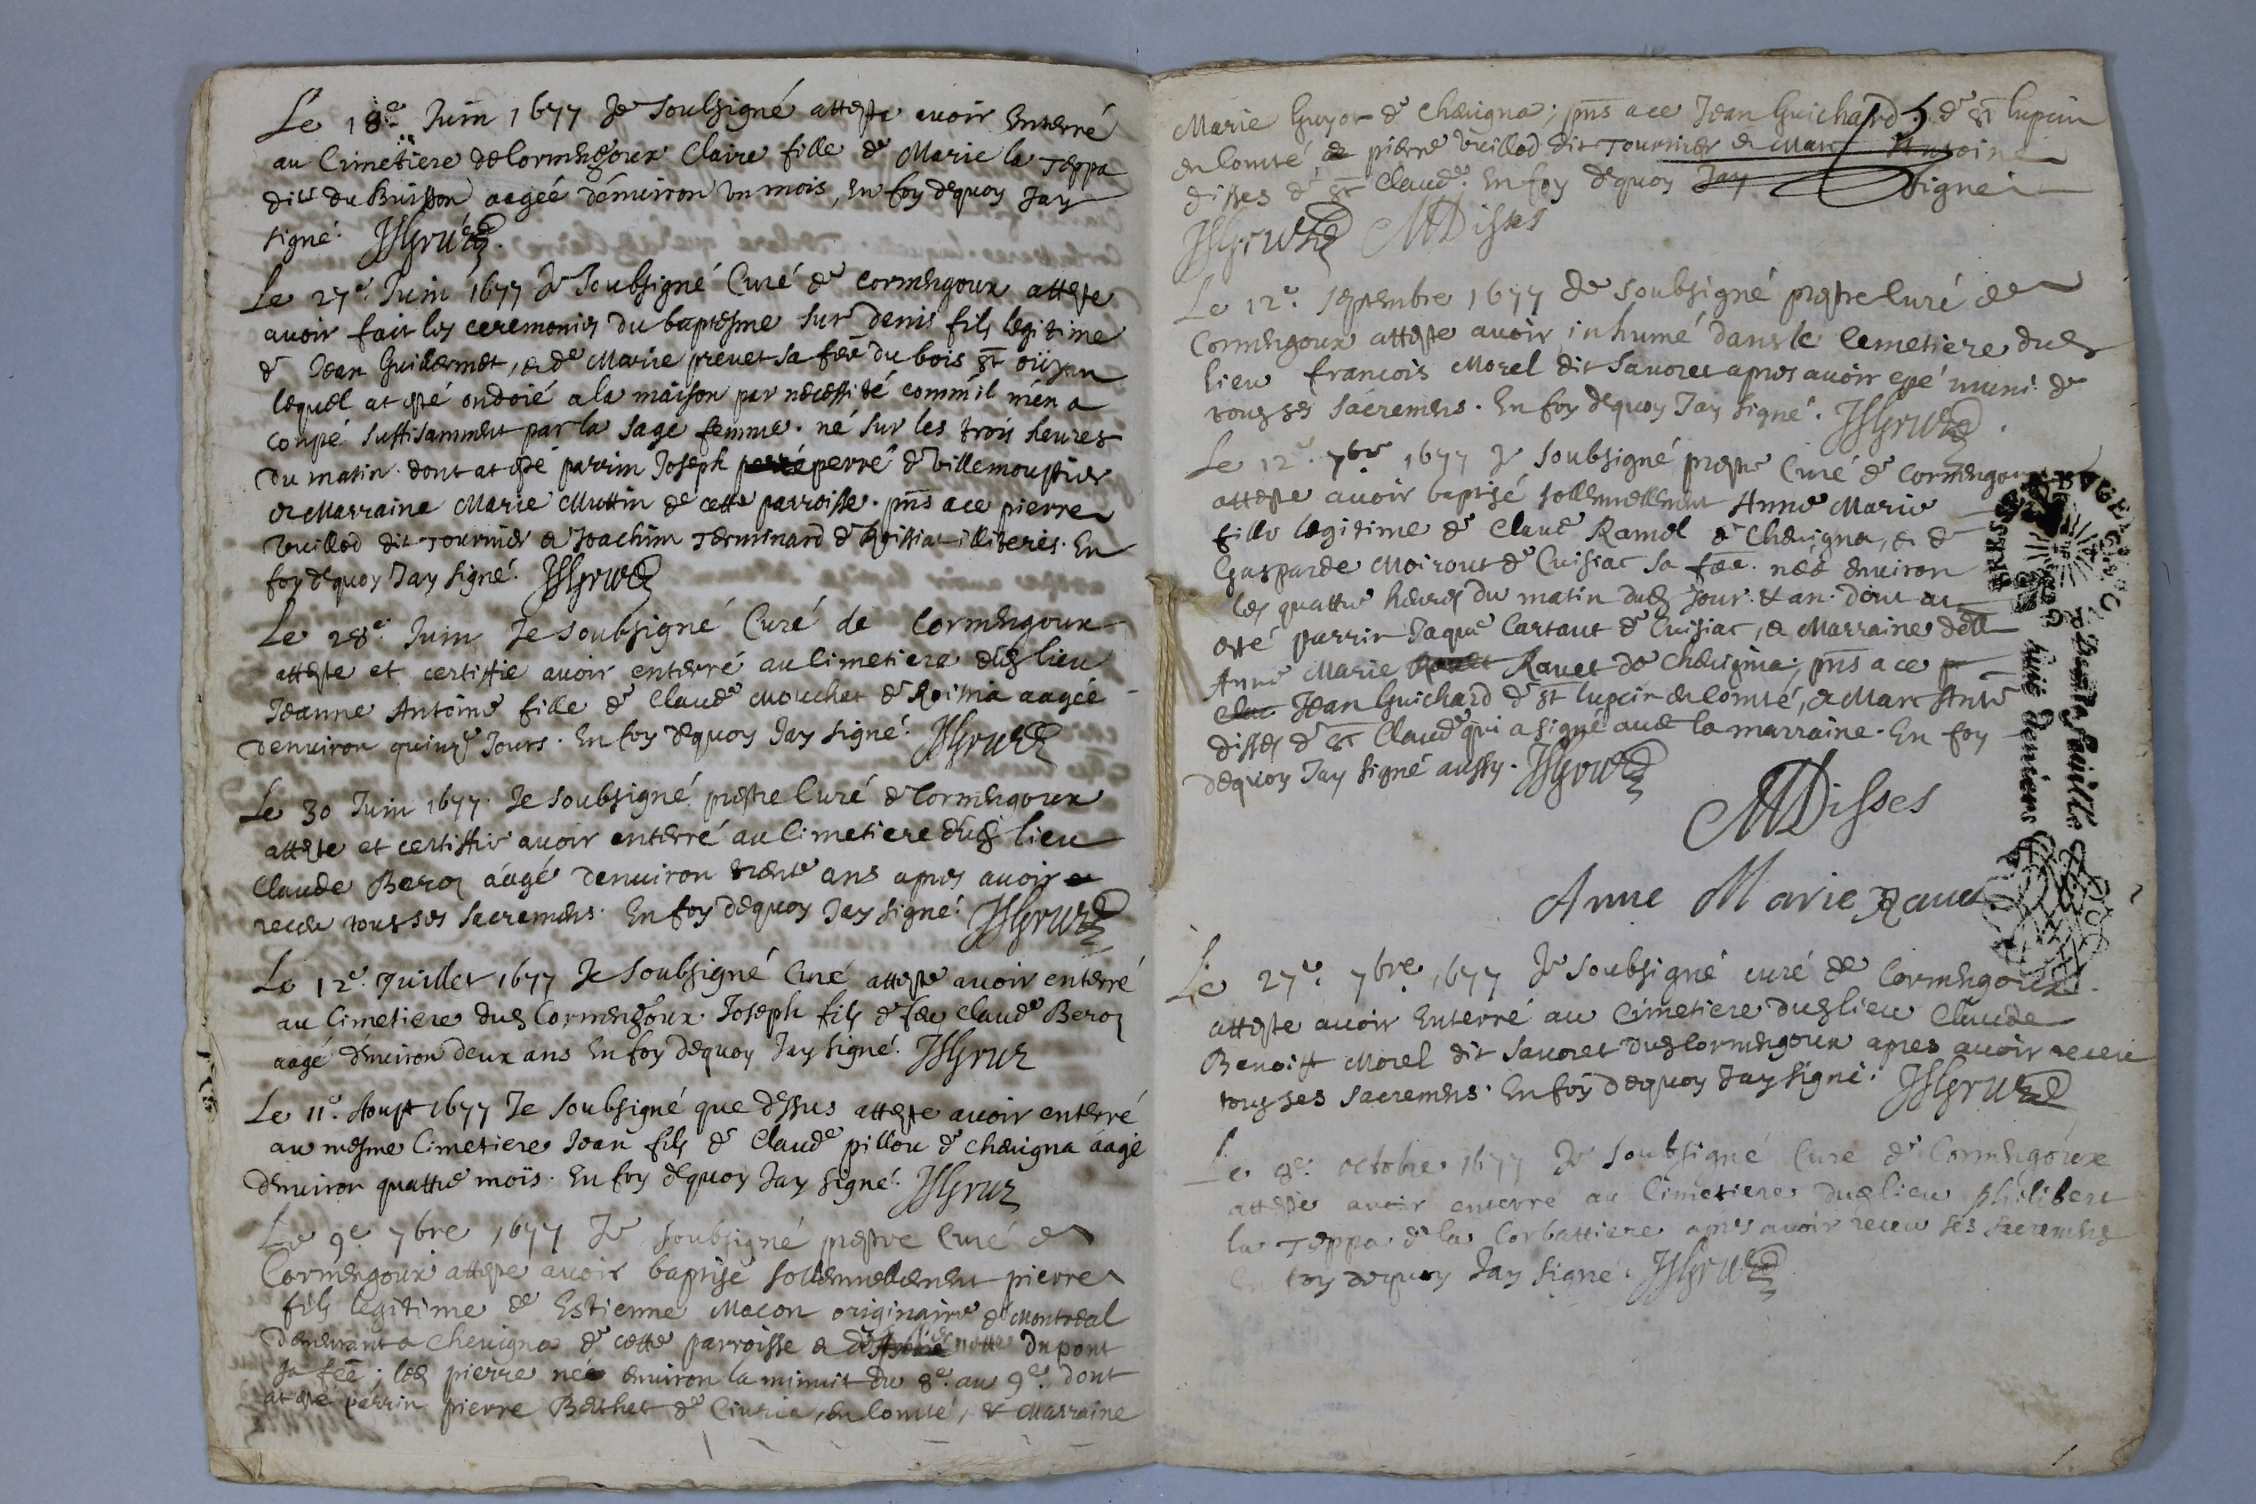 Le 18e Juin 1677 Je soubsigné atteste avoir Enterré
au Cimetiere de Cormengoux Claire fille de Marie la Teppa
dite du Buisson aagée d'environ un mois, En foy dequoy Jay
signé.
Le 27e Juin 1677 Je soubsigné Curé de Cormengoux atteste
avoir fait les ceremonies du baptesme sur denis fils legitime
de Jean Guillermet, et de Marie prevet sa fee du bois st oÿan
lequel at esté ondoié a la maison par necessité comm'il m'en a
coupé suffisamment par la sage femme. né sur les trois heures
du matin. dont at esté parrin Joseph perré de Villemoustier
et Marraine Marie Muttin de cette parroisse. pns a ce pierre
Vuillod dit tournier et Joachim Terminard de illiterés. En
foy dequoy Jay signé.
Le 28e Juin Je soubsigné Curé de Cormengoux
atteste et certiffie avoir enterré au Cimetiere dud lieu
Jeanne Antoine fille de Claude Mouchet de Roisia aagée
denviron quinze Jours. En foy dequoy Jay signé.
Le 30 Juin 1677 Je soubsigné prestre Curé de Cormengoux
atteste et certiffie avoir enterré au Cimetiere dud lieu
Claude Beroz aagé denviron trente ans apres avoir
receu tous ses sacremens. En foy dequoy Jay signé.
Le 12e Juillet 1677 Je soubsigné Curé atteste avoir enterré
au Cimetiere dud Cormengoux Joseph fils de feu Claude Beroz
aagé d'environ deux ans En foy dequoy Jay signé.
Le 11e Aoust 1677 Je soubsigné que dessus atteste avoir enterré
au mesme Cimetiere Jean fils de Claude pillou de Chevigna aagé
d'environ quattre moïs. En foy dequoy Jay signé.
Le 9e 7bre 1677 Je soubsigné prestre Curé de
Cormengoux atteste avoir baptisé sollennellement pierre
fils legitime de Estienne Macon originaire de Montreal
demeurant a Chevigna de cette parroisse et notte Dupont
sa fée; led pierre née environ la minuit du 8e au 9e. dont
at esté parrin pierre Berthet de Civria, en Comté, et Marraine
Marie Guyot de Chevigna; pns a ce Jean Guichard de st lupcin
en Comté et pierre Vuillod dit Tournier et Marc Antoine
disses de st Claude. En foy dequoy Jay signé
MADisses
Le 12e. septembre 1677 Je soubsigné prestre Curé de
Cormengoux atteste avoir inhumé dans le Cemetiere dud
lieu francois Morel dit Savoret apres avoir esté muni de
tous ses sacremens. En foy dequoy Jay signé.
Le 12e. 7bre 1677 Je soubsigné prestre Curé de Cormengoux
atteste avoir baptisé sollennellement Anne Marie
fille legitime de Claude Ramel de Chevigna, et de
Gasparde Moirout de Cuisiac sa fée. née environ
les quattre heures du matin dud Jour et an. dont at
esté parrin Jaque Cartaut de Cuisiac, et Marraine delle
Anne Marie Ravet de Chevigna; pns a ce
Jean Guichard de st lupcin en Comté, et Marc Ante
disses de st Claude qui a signé avec la marraine. En foy
dequoy Jay signé aussy.
MADisses
Anne Marie Ravet
Le 27e. 7bre 1677 Je soubsigné curé de Cormengoux
atteste avoir Enterré au Cimetiere dud lieu Claude
Benoist Morel dit Savoret dud Cormengoux apres avoir receu
tous ses sacremens. En foy dequoy Jay signé.
Le 8e. octobre 1677 Je soubsigné Curé de Cormengoux
atteste avoir enterré au Cimetiere dud lieu philibert
la Teppa de la Corbattiere apres avoir receu ses sacremens
En foy dequoy Jay signé.
BRESSE BUGEY
huit deniers